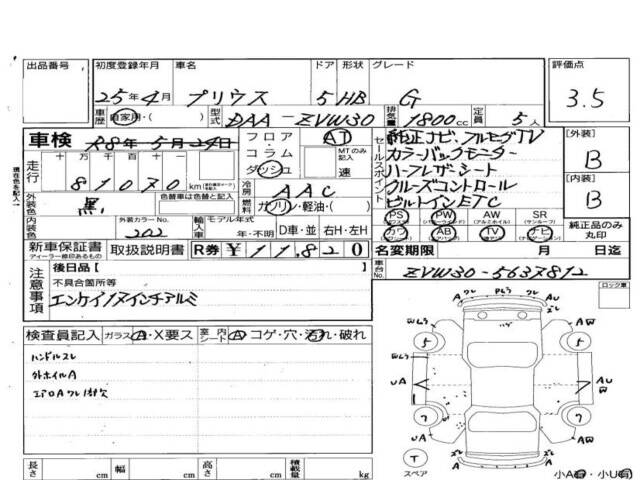 出品番号 初度登録年月 車名 ドア 形状 グレード 評価点
25年4月 プリウス 5 HB G 3.5
車歴 自家用・( ) 型式 DAA-ZVW30 排気量 1800cc 定員 5人
車検 R8年5月24日 フロア・コラム・ダッシュ AT MTのみ記入 速
セールスポイント 純正ナビ、フルセグTV
カラーバックモニター
ハーフレザーシート
クルーズコントロール
ビルトインETC
[外装] B
[内装] B
現在色を記入
走行 十 万 千 百 十 一
81070km
冷房 AAC
燃料 ガソリン・軽油・( )
外装色 黒 色替車は色替と記入
内装色 外装カラーNo. 202 輸入車 モデル年式 年・不明 D車・並 右H・左H
PS PW AW SR
(パワーステアリング) (パワーウィンドウ) (アルミホイル) (サンルーフ)
カワ AB TV ナビ
純正品のみ丸印
新車保証書 取扱説明書 R券 ¥11,820 名変期限 月 日迄
ディーラー捺印あるもの
車台No. ZVW30-5637812
注意事項 後日品[ ]
不具合箇所等
エンケイ17インチアルミ
ロック車
検査員記入 ガラス A・X要ス 室内シート A コゲ・穴・汚れ・破れ
ハンドルスレ
外ホイルA
エアロAワレ1部欠
A
ハゲ
5 5
UA
7 7
UA
T
スペア
小A有・小U有
長さ cm 幅 cm 高さ cm 積載量 kg